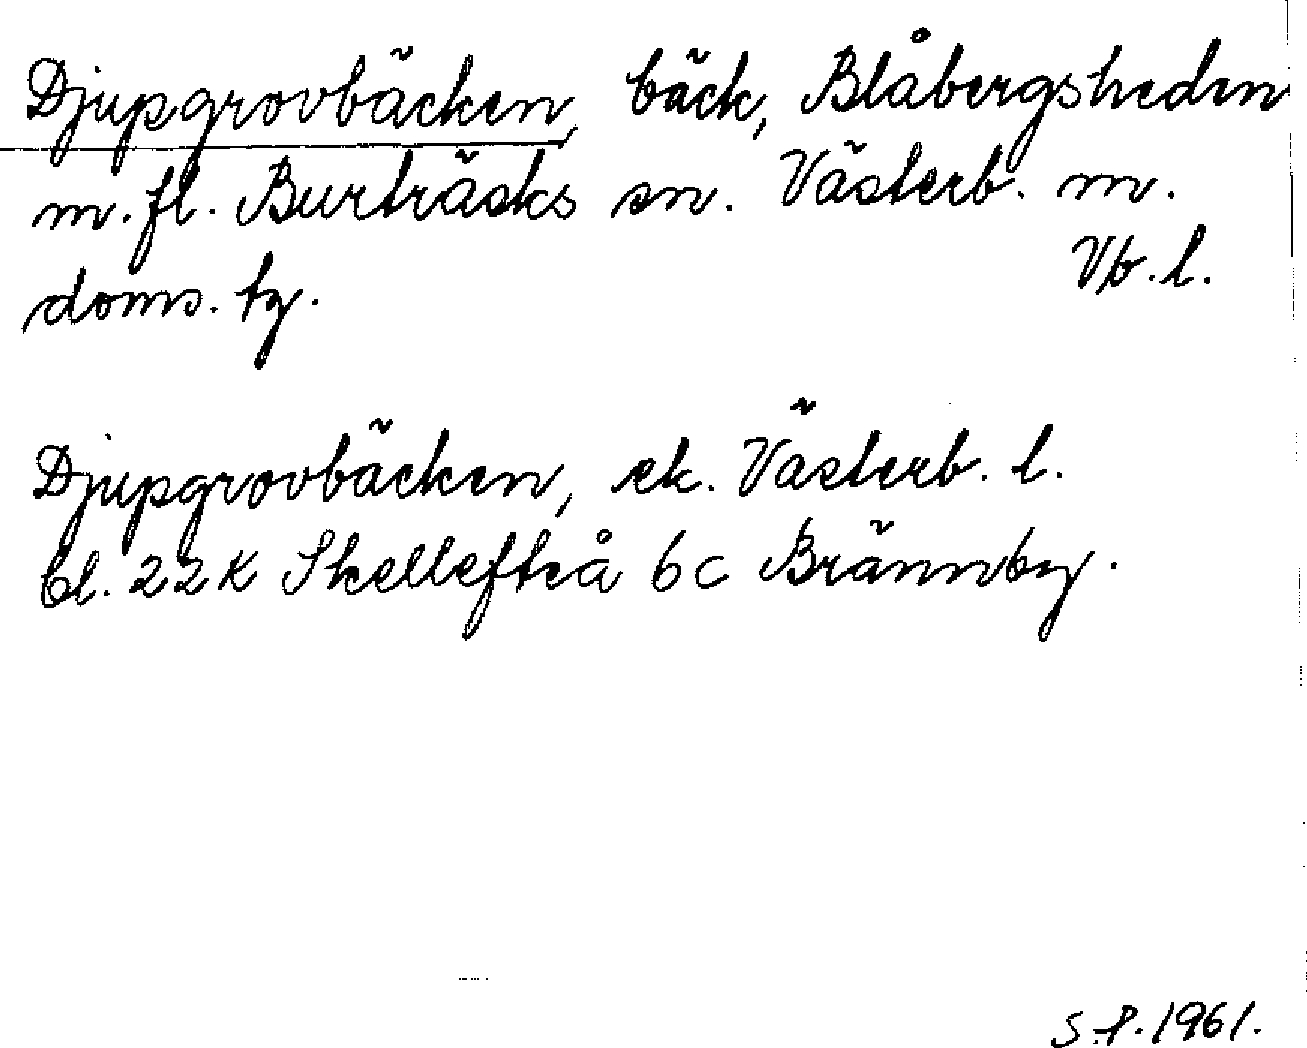 Djupgrovbäcken, bäck, Blåbergsheden
m. fl. Burträsks sn. Västerb. m.
doms. tg. Vb. l.
Djupgrovbäcken, ek. Västerb. l.
bl. 22K Skellefteå 6c Brännby.
S.P. 1961.